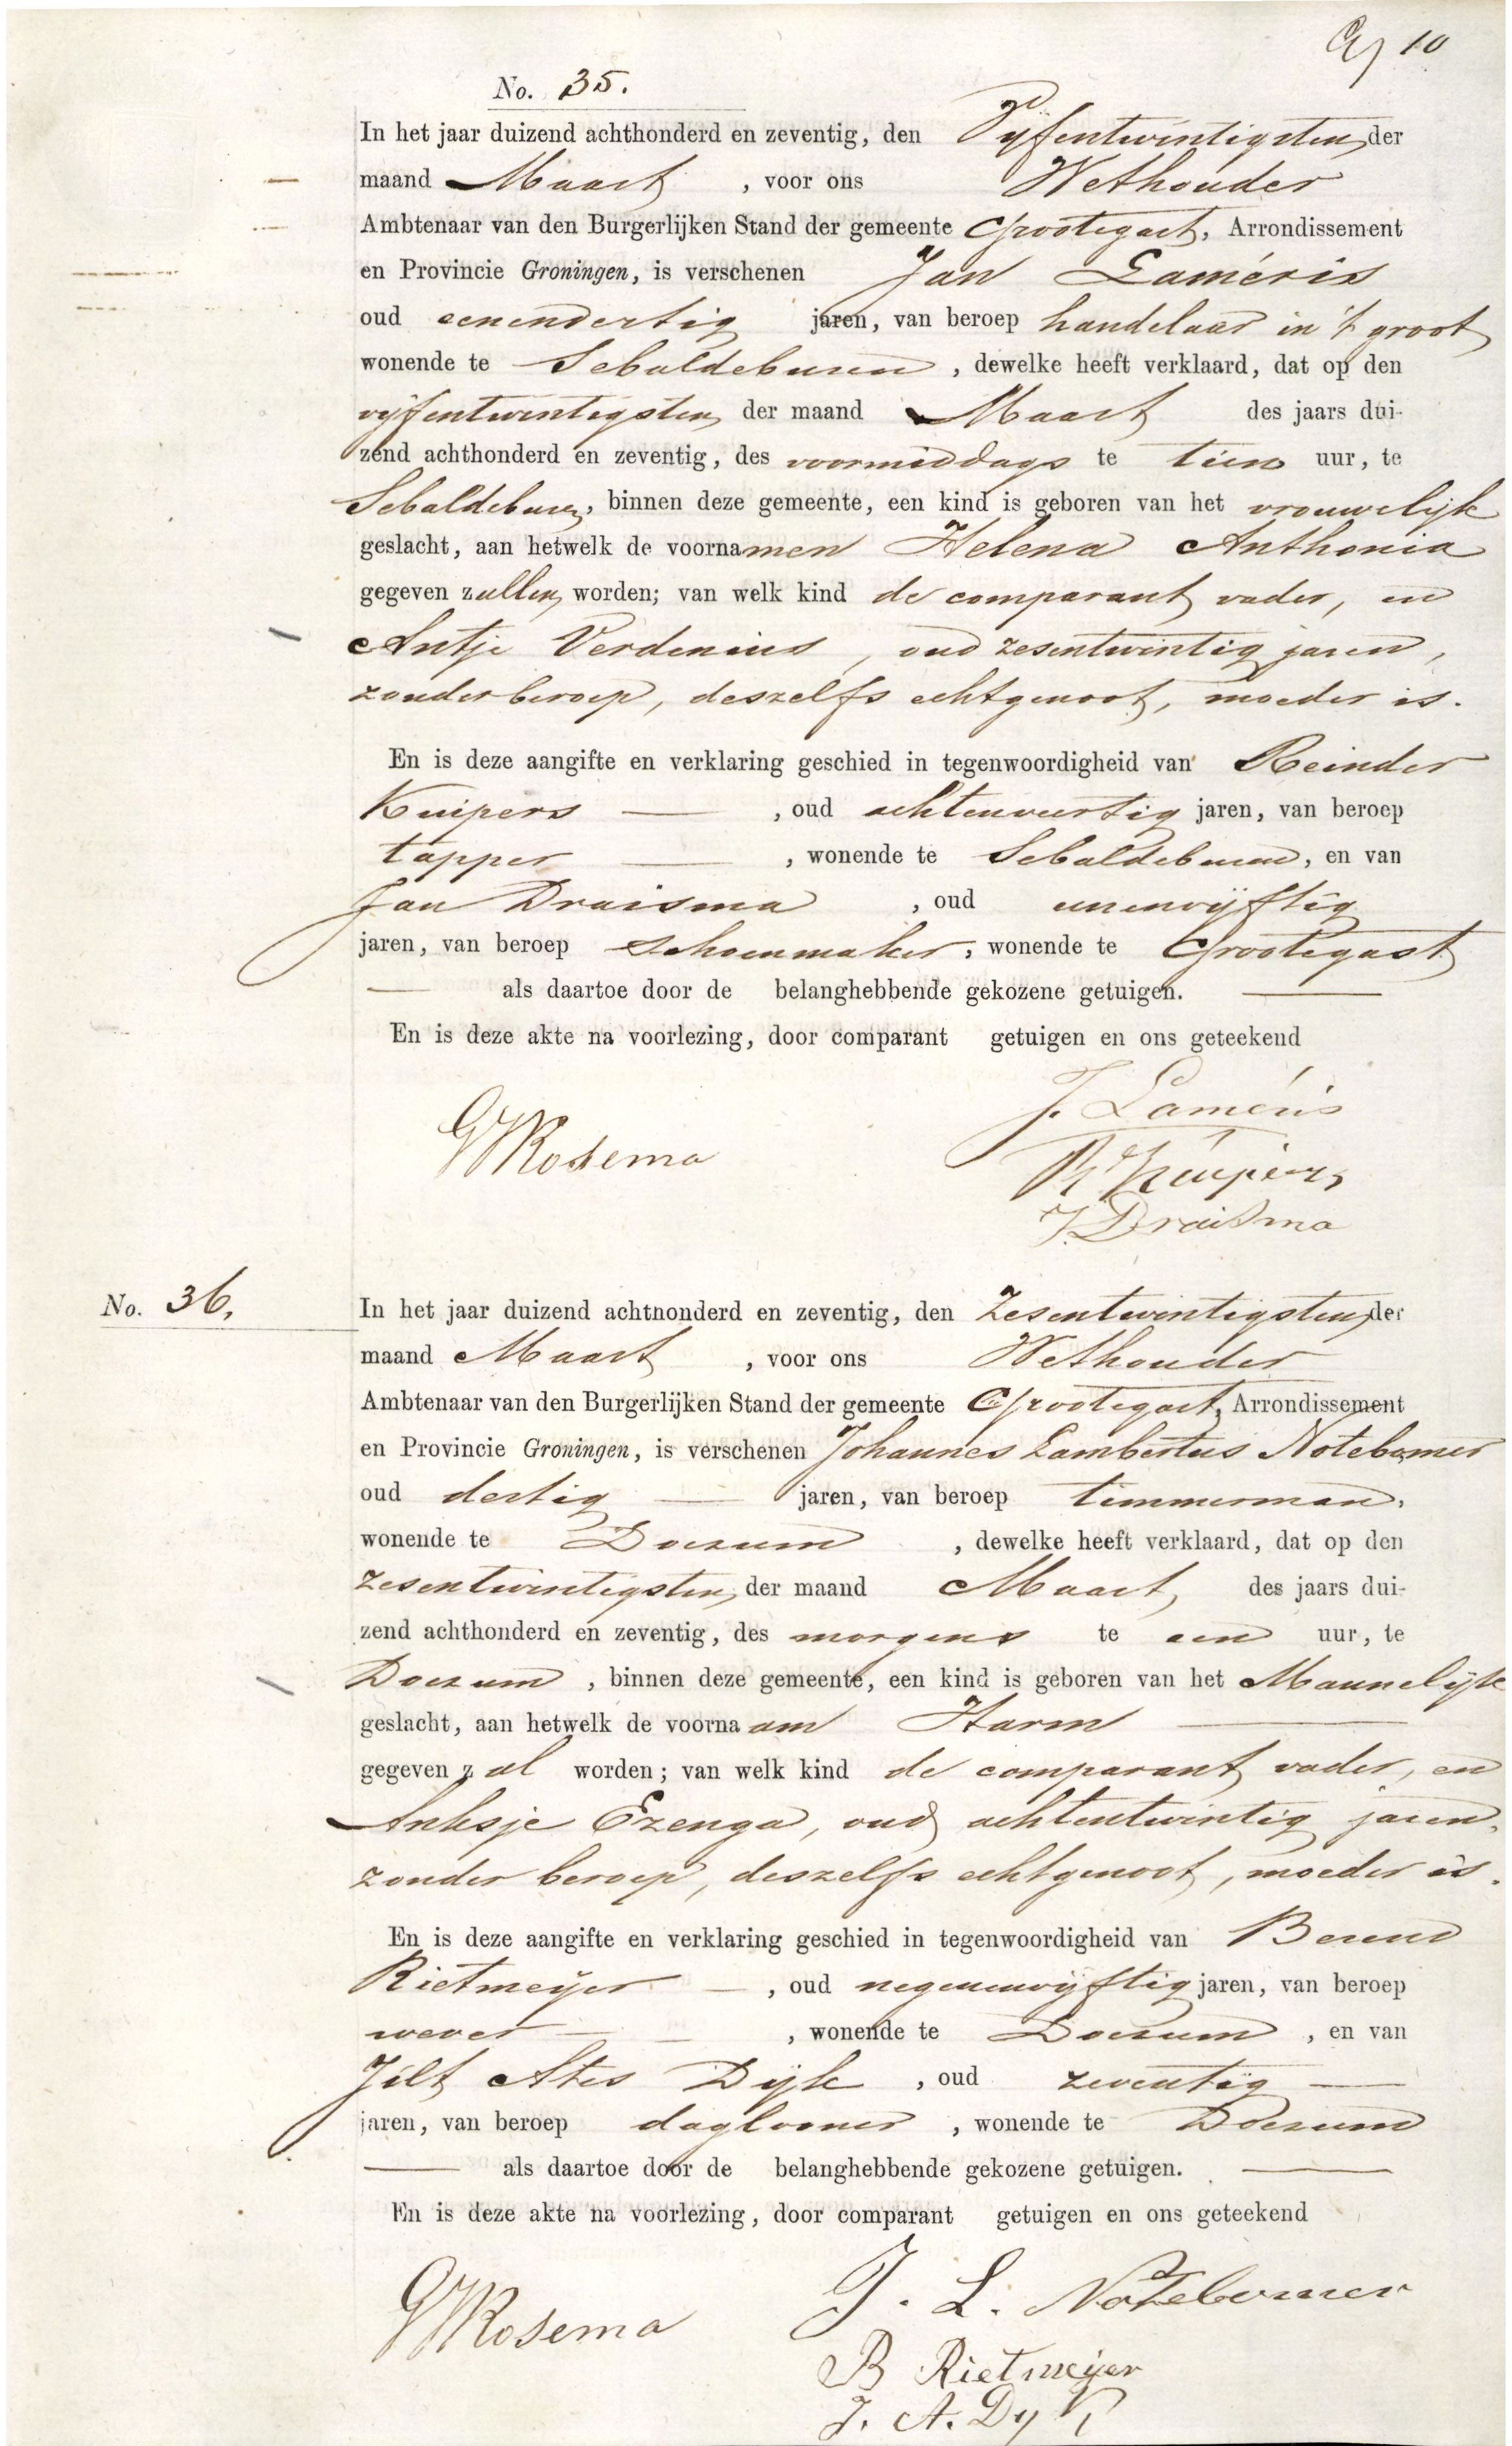 10
No. 35.
In het jaar duizend achthonderd en zeventig, den Vijfentwintigsten der
maand Maart , voor ons Wethouder
Ambtenaar van den Burgerlijken Stand der gemeente Grootegast, Arrondissement
en Provincie Groningen, is verschenen Jan Laméris
oud eenendertig jaren, van beroep handelaar in 't groot
wonende te Sebaldeburen , dewelke heeft verklaard, dat op den
vijfentwintigsten der maand Maart des jaars dui-
zend achthonderd en zeventig, des voormiddags te tien uur, te
Sebaldeburen, binnen deze gemeente, een kind is geboren van het vrouwelijk
geslacht, aan hetwelk de voornamen Helena Anthonia
gegeven zullen worden; van welk kind de comparant vader, en
Antje Verdenius, oud zesentwintig jaren,
zonder beroep, deszelfs echtgenoot, moeder is.
En is deze aangifte en verklaring geschied in tegenwoordigheid van Reinder
Kuipers — , oud achtenveertig jaren, van beroep
tapper — , wonende te Sebaldeburen, en van
Jan Draisma , oud eenenvijftig
jaren, van beroep schoenmaker, wonende te Grootegast
— als daartoe door de belanghebbende gekozene getuigen. —
En is deze akte na voorlezing, door comparant getuigen en ons geteekend
J. Laméris
GRosema
R Kuipers
J Draisma
No. 36.
In het jaar duizend achthonderd en zeventig, den Zesentwintigsten der
maand Maart , voor ons Wethouder
Ambtenaar van den Burgerlijken Stand der gemeente Grootegast, Arrondissement
en Provincie Groningen, is verschenen Johannes Lambertus Notebomer
oud dertig — jaren, van beroep timmerman,
wonende te Doezum , dewelke heeft verklaard, dat op den
zesentwintigsten der maand Maart des jaars dui-
zend achthonderd en zeventig, des morgens te een uur, te
Doezum , binnen deze gemeente, een kind is geboren van het Mannelijk
geslacht, aan hetwelk de voornaam Harm —
gegeven zal worden; van welk kind de comparant vader, en
Anksje Ezenga, oud achtentwintig jaren,
zonder beroep, deszelfs echtgenoot, moeder is.
En is deze aangifte en verklaring geschied in tegenwoordigheid van Berend
Rietmeijer — , oud negenenvijftig jaren, van beroep
wever — , wonende te Doezum , en van
Jilt Ates Dijk , oud zeventig —
jaren, van beroep daglooner , wonende te Doezum
— als daartoe door de belanghebbende gekozene getuigen. —
En is deze akte na voorlezing, door comparant getuigen en ons geteekend
J. L. Notebomer
GRosema
B Rietmeijer
J. A. Dyk